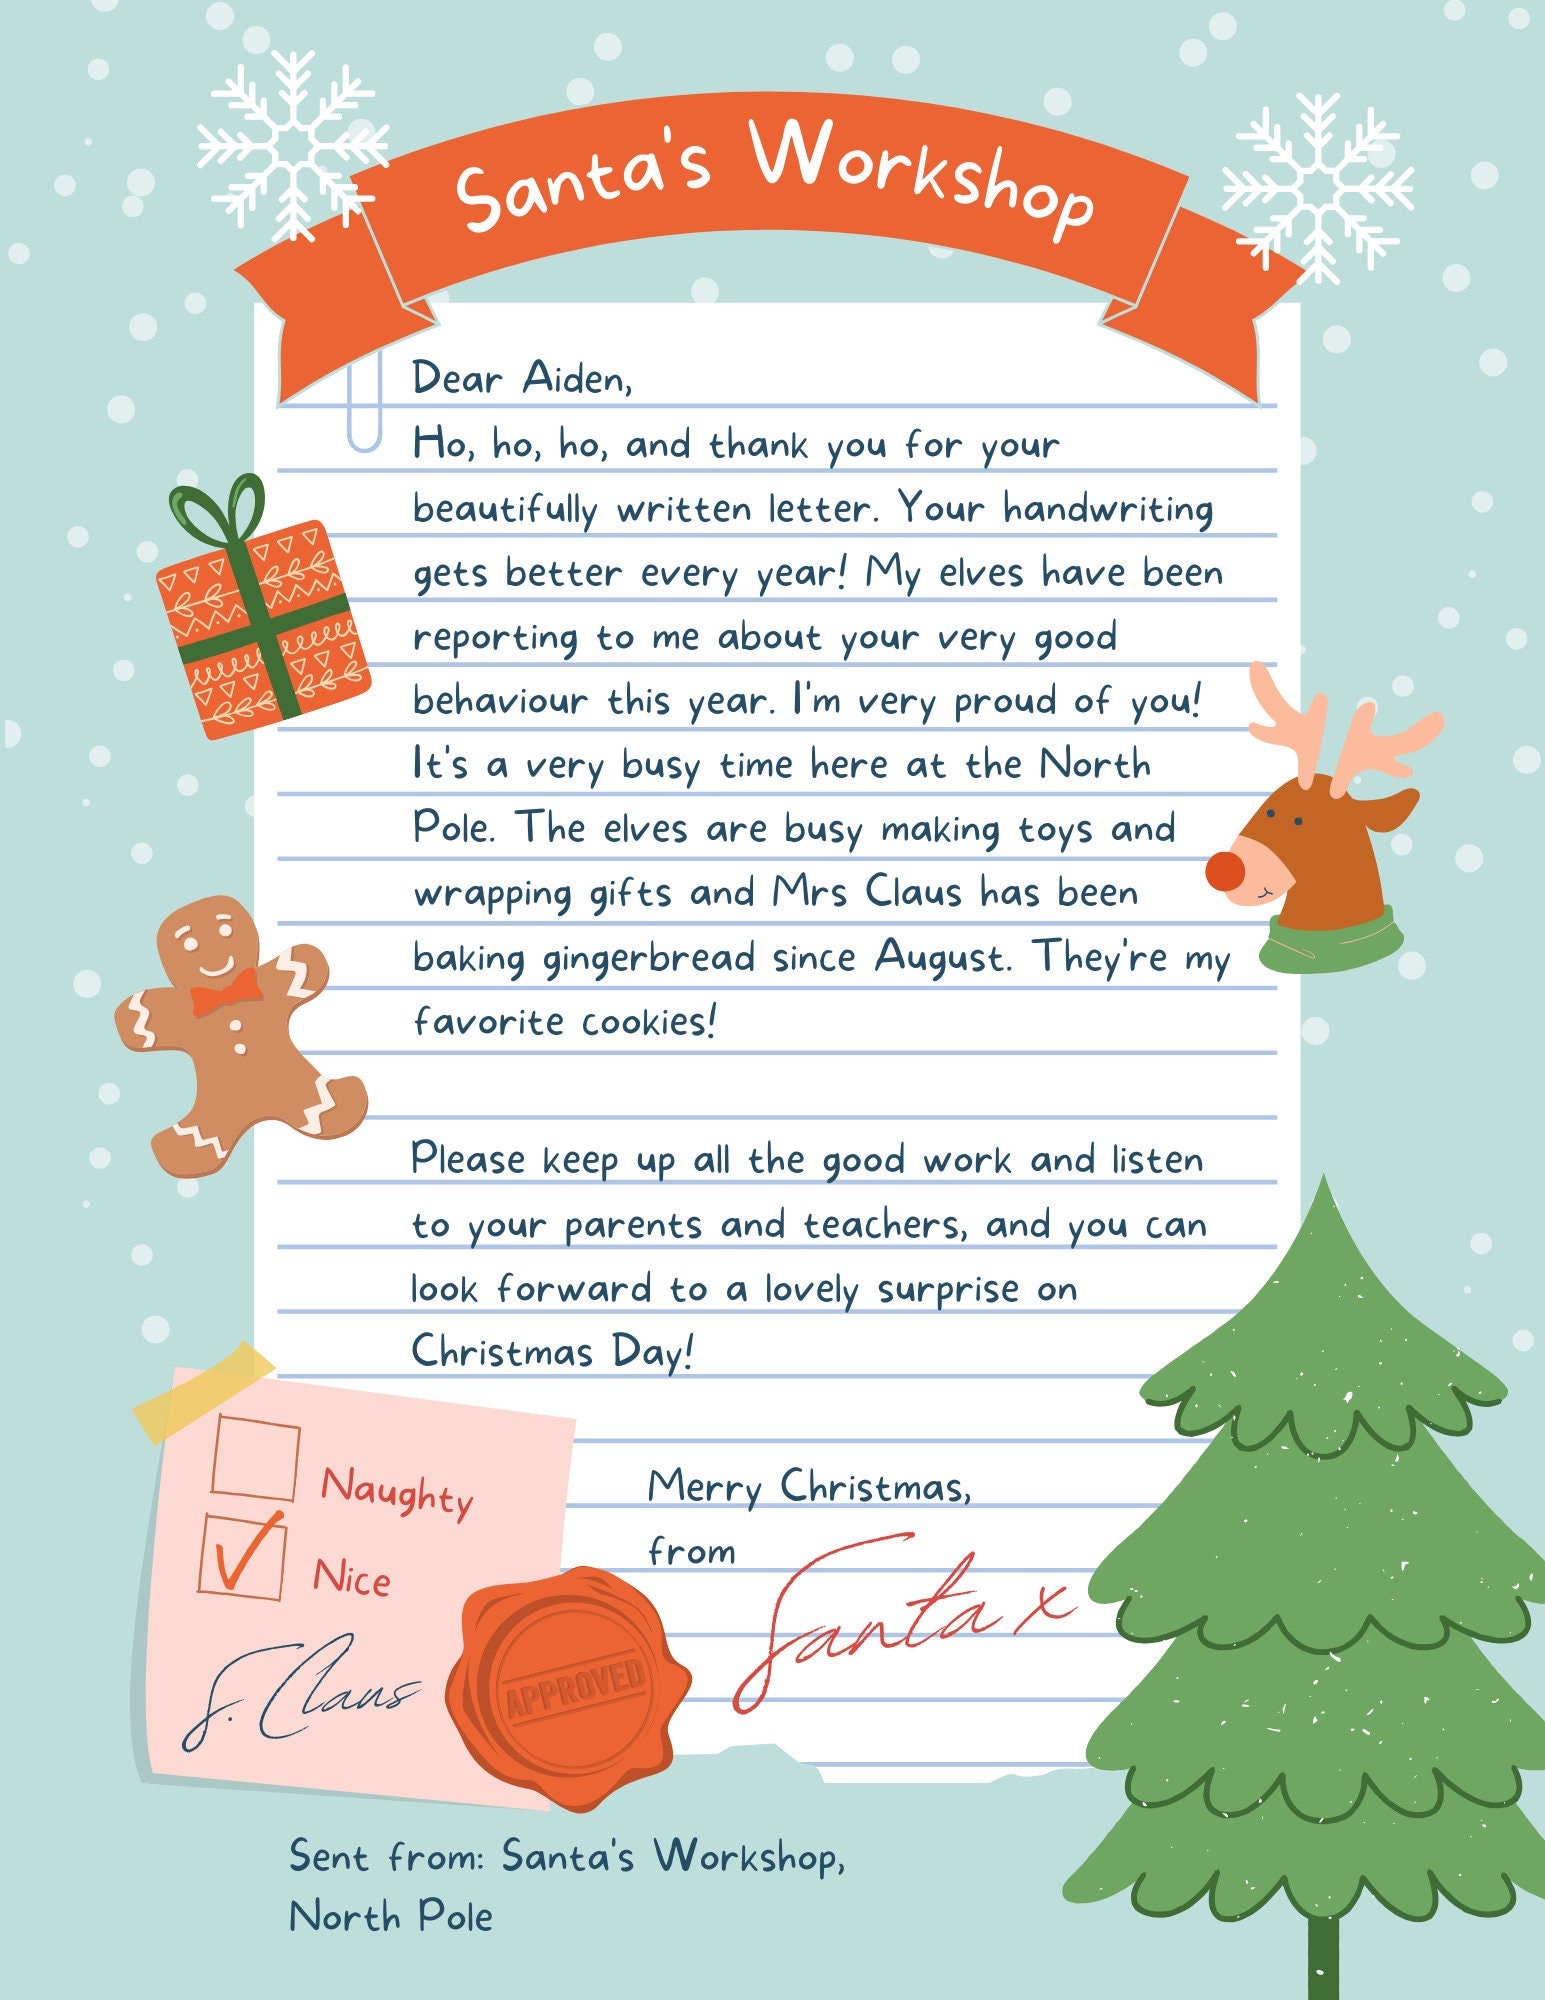 Santa's Workshop
Dear Aiden,
Ho, ho, ho, and thank you for your
beautifully written letter. Your handwriting
gets better every year! My elves have been
reporting to me about your very good
behaviour this year. I'm very proud of you!
It's a very busy time here at the North
Pole. The elves are busy making toys and
wrapping gifts and Mrs Claus has been
baking gingerbread since August. They're my
favorite cookies!
Please keep up all the good work and listen
to your parents and teachers, and you can
look forward to a lovely surprise on
Christmas Day!
Naughty
Nice
S. Claus
APPROVED
Merry Christmas,
from
Santa x
Sent from: Santa's Workshop,
North Pole